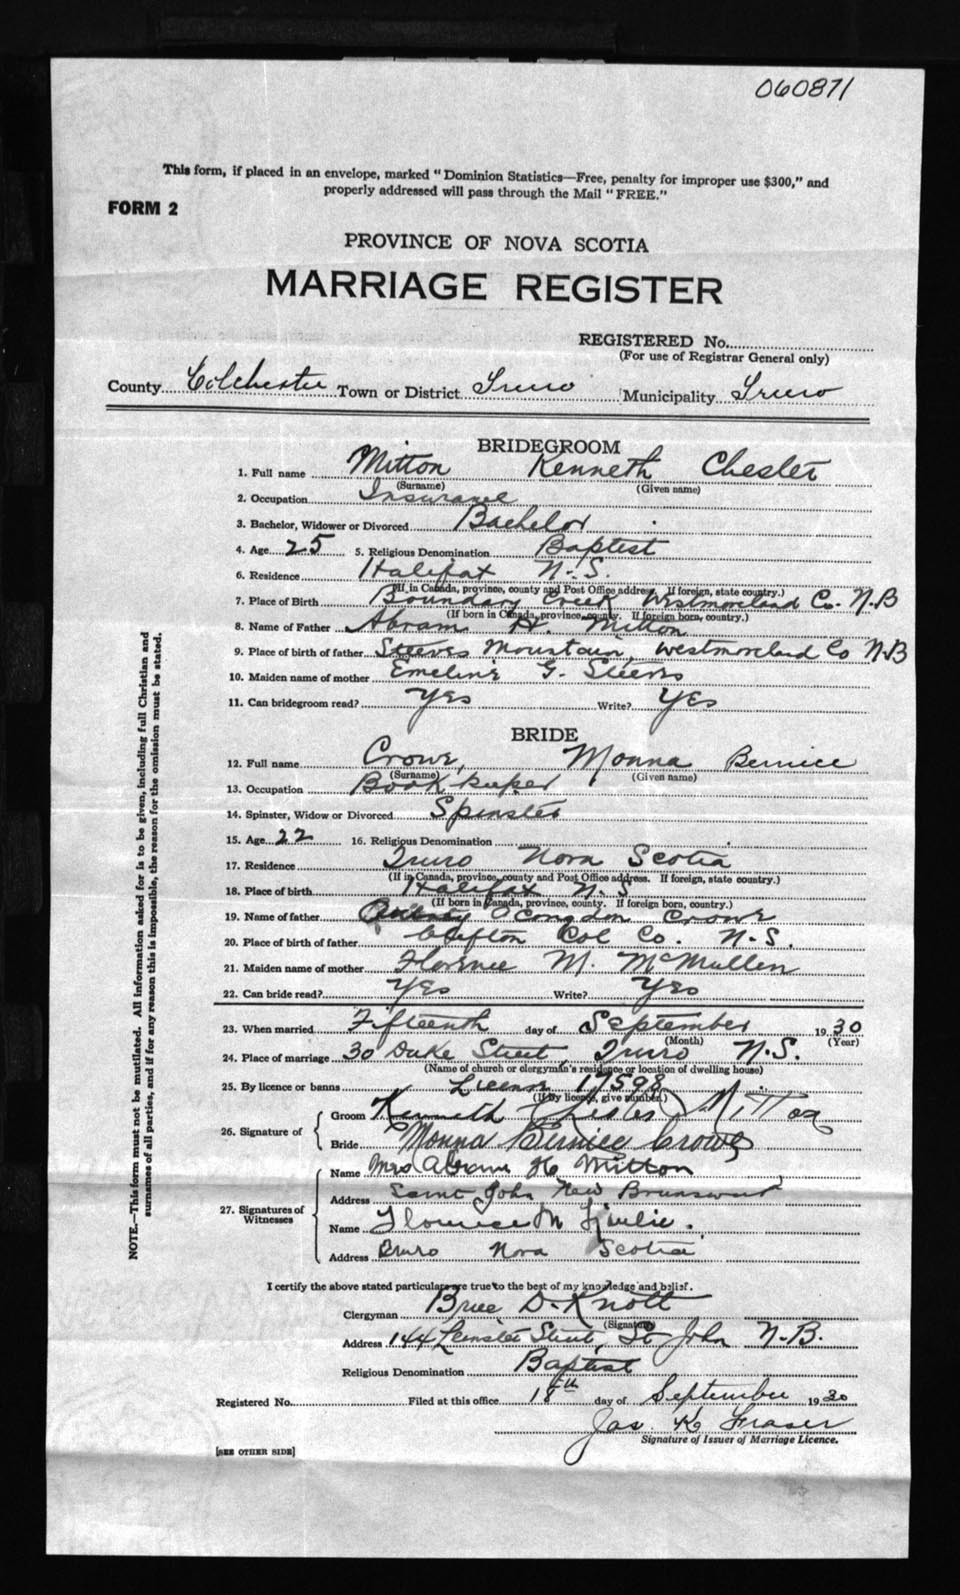 060871
This form, if placed in an envelope, marked "Dominion Statistics—Free, penalty for improper use $300," and
properly addressed will pass through the Mail "FREE."
FORM 2
PROVINCE OF NOVA SCOTIA
MARRIAGE REGISTER
REGISTERED No.
(For use of Registrar General only)
County Colchester Town or District Truro Municipality Truro
BRIDEGROOM
1. Full name Mitton Kenneth Chester
(Surname) (Given name)
2. Occupation Insurance
3. Bachelor, Widower or Divorced Bachelor
4. Age 25 5. Religious Denomination Baptist
6. Residence Halifax N.S.
(If in Canada, province, county and Post Office address. If foreign, state country.)
7. Place of Birth Boundary Creek Westmoreland Co. N.B
(If born in Canada, province, county. If foreign born, country.)
8. Name of Father Abram H. Mitton
9. Place of birth of father Steeves Mountain, Westmoreland Co N.B
10. Maiden name of mother Emeline G. Steeves
11. Can bridegroom read? Yes Write? Yes
BRIDE
12. Full name Crowe, Monna Bernice
(Surname) (Given name)
13. Occupation Book keeper
14. Spinster, Widow or Divorced Spinster
15. Age 22 16. Religious Denomination
17. Residence Truro Nova Scotia
(If in Canada, province, county and Post Office address. If foreign, state country.)
18. Place of birth Halifax N.S.
(If born in Canada, province, county. If foreign born, country.)
19. Name of father Congdon Crowe
20. Place of birth of father Clifton Col Co. N.S.
21. Maiden name of mother Florence M. McMullen
22. Can bride read? Yes Write? Yes
23. When married Fifteenth day of September 1930
(Month) (Year)
24. Place of marriage 30 Duke Street, Truro N.S.
(Name of church or clergyman's residence or location of dwelling house)
25. By licence or banns License 17598
(If by licence, give number.)
26. Signature of
Groom Kenneth Chester Mitton
Bride Monna Bernice Crowe
27. Signatures of Witnesses
Name Mrs Abram H Mitton
Address Saint John New Brunswick
Name Florence M
Address Truro Nova Scotia
I certify the above stated particulars are true to the best of my knowledge and belief.
Clergyman Brice D. Knott
(Signature)
Address 144 Leinster Street, St John N.B.
Religious Denomination Baptist
Registered No. Filed at this office 18th day of September 1930
Jas. K Fraser
Signature of Issuer of Marriage Licence.
[SEE OTHER SIDE]
NOTE.—This form must not be mutilated. All information asked for is to be given, including full Christian and
surnames of all parties, and if for any reason this is impossible, the reason for the omission must be stated.